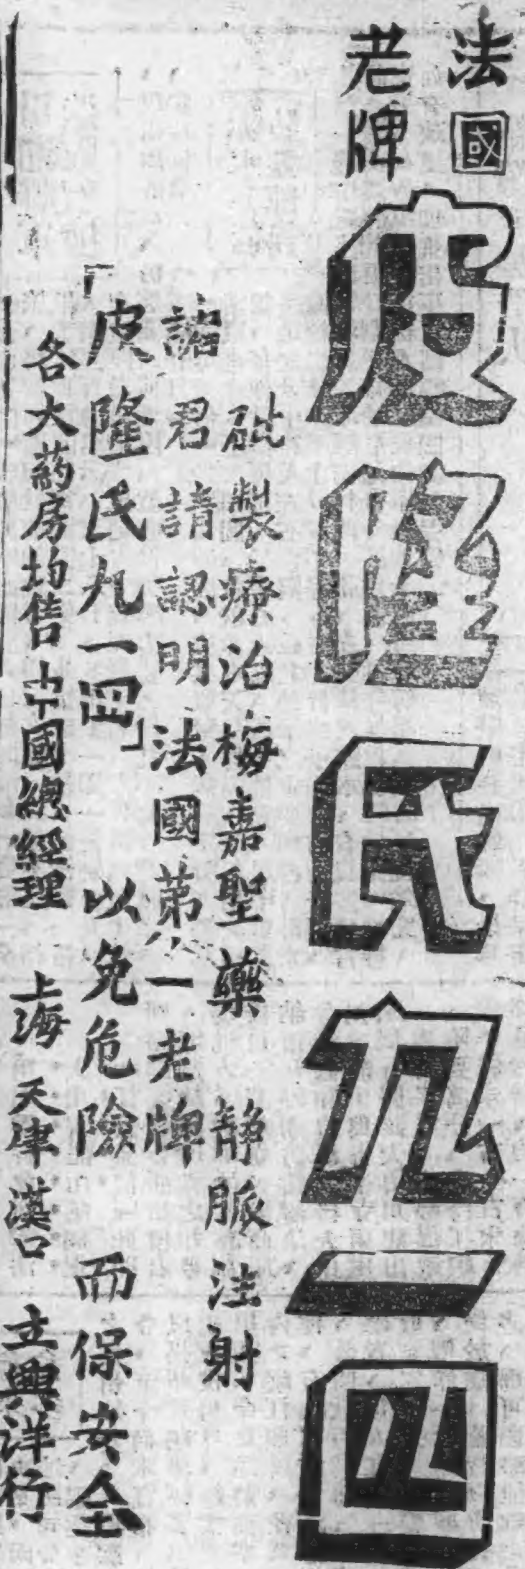 法國
老牌
皮隆氏九一四
砒製療治梅毒聖藥 靜脈注射
諸君請認明法國第一老牌
「皮隆氏九一四」以免危險 而保安全
各大葯房均售中國總經理 上海 天津 漢口 立興洋行